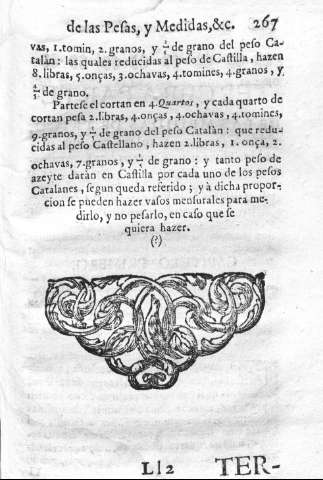 de las Pesas, y Medidas,&c. 267
vas, 1.tomin, 2.granos, y de grano del peso Ca-
talàn: las quales reducidas al peso de Castilla, hazen
8.libras, 5.onças, 3.ochavas, 4.tomines, 4.granos, y
de grano.
Partese el cortan en 4.Quartos, y cada quarto de
cortan pesa 2.libras, 4.onças, 4.ochavas, 4.tomines,
9.granos, y de grano del peso Catalàn: que redu-
cidas al peso Castellano, hazen 2.libras, 1.onça, 2.
ochavas, 7.granos, y de grano: y tanto peso de
azeyte daràn en Castilla por cada uno de los pesos
Catalanes, segun queda referido; y à dicha propor-
cion se pueden hazer vasos mensurales para me-
dirlo, y no pesarlo, en caso que se
quiera hazer.
(?)
Ll2 TER-